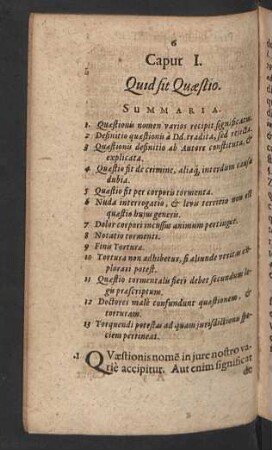 6
Caput I.
Quid sit Quæstio.
SUMMARIA.
1 Quæstionis nomen varios recipit significatus.
2 Definitio quæstionis à Dd. tradita, sed rejecta.
3 Quæstionis definitio ab Autore constituta, &
explicata.
4 Quæstio fit de crimine, aliaq, interdum causa
dubia.
5 Quæstio fit per corporis tormenta.
6 Nuda interrogatio, & levis territio non est
quæstio hujus generis.
7 Dolor corpori incussus animum pertingit.
8 Notatio tormenti.
9 Finis Torturæ.
10 Tortura non adhibetur, si aliunde veritas ex-
plorari potest.
11 Quæstio tormentalis fieri debet secundum le-
gis præscriptum.
12 Doctores malè confundunt quæstionem, &
torturam.
13 Torquendi potestas ad quam jurisdictionis spe-
ciem pertineat.
.1 QVæstionis nomē in jure nostro va-
riè accipitur. Aut enim significat